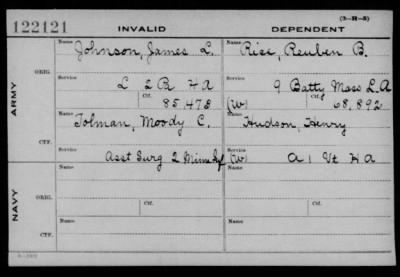 (3-H-5)
122121 INVALID DEPENDENT
Name Johnson, James L. Name Rice, Reuben B.
ARMY
ORIG.
Service L 2 R H A Service 9 Batty Mass L.A
Ctf. 85,478 (W) Ctf. 68,892
Name Tolman, Moody C. Name Hudson, Henry
CTF.
Service Asst Surg 2 Minn Inf Service (W) A 1 Vt H A
NAVY
Name Name
ORIG.
Service Ctf. Service Ctf.
Name Name
CTF.
Service Service